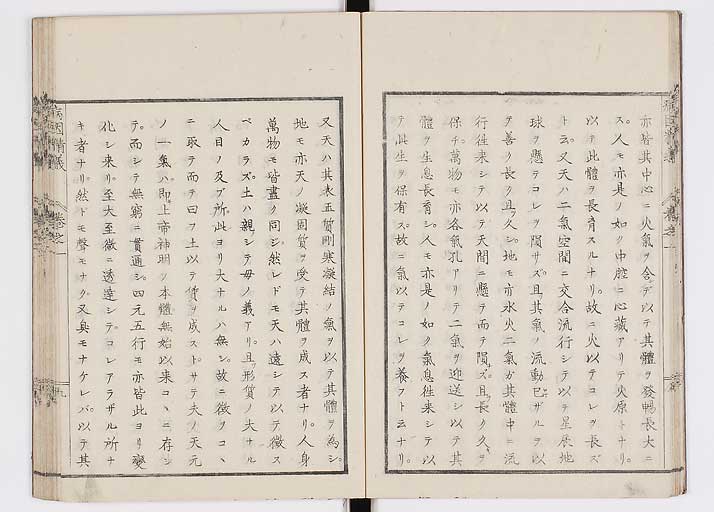 亦皆其中心ニ火氣ヲ含テ以テ其體ヲ發暢長大ニ
ス。人モ亦是ノ如ク中腔ニ心藏アリテ火原トナリ。
以テ此體ヲ長育スルナリ。故ニ火以テコレヲ長ズ
ト云。又天ハ二氣空間ニ交合流行シテ以テ星辰地
球ヲ懸テコレヲ隕サズ。且其氣ノ流動已ザルヲ以
テ善ク長ク且ツ久シ。地モ亦水火二氣ガ其體中ニ流
行往来シテ以テ天間ニ懸テ而テ隕ズ。且長ク久ヲ
保チ萬物モ亦各氣孔アリテ二氣ヲ迎送シ以テ其
體ヲ生息長育シ。人モ亦是ノ如ク氣息往来シテ以
テ此生ヲ保有ス。故ニ氣以テコレヲ養フト云ナリ。
又天ハ其表五質剛寒凝結ノ氣ヲ以テ其體ヲ為シ。
地モ亦天ノ凝固質ヲ受テ其體ヲ成ス者ナリ。人身
萬物モ皆盡ク同ジ。然レドモ天ハ遠シテ以テ徴ス
ベカラズ。土ハ親フシテ母ノ義アリ。且ツ形質ノ大ナル
人目ノ及ブ所。此ヨリ大ナルハ無シ。故ニ徴ヲコヽ
ニ取テ而テ曰ク土以テ質ヲ成ス。ト。サテ夫ノ天元
ノ一氣ハ。即。上帝神明ノ本體無始以来コヽニ存シ
テ。而シテ無窮ニ貫通シ。四元五行モ亦皆此ヨリ變
化シ来リ。至大至微ニ透達シテ。コレアラザル所ナ
キ者ナリ。然ドモ聲モナク。又臭モナケレバ。以テ其
病因精義
卷之一
九